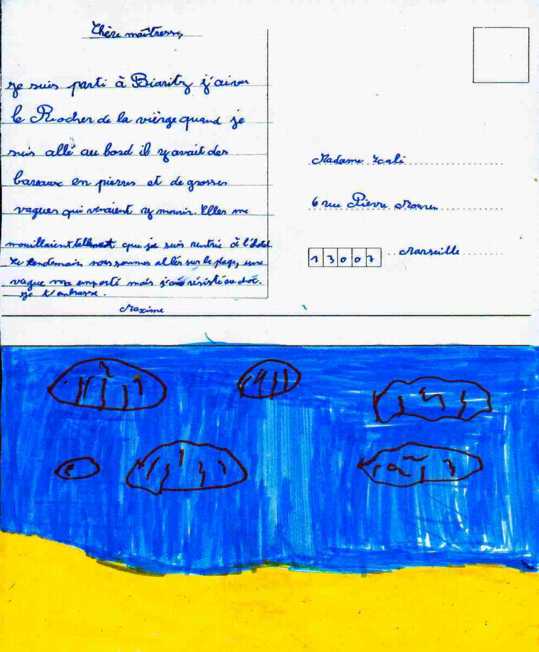 Chère maîtresse,
je suis parti à Biaritz j'ai vu
le Rocher de la vièrge quand je
suis allé au bord il y avait des
bareaux en pierres et de grosses
vagues qui venaient y mourir. Elles me
mouillaient tellement que je suis rentré à l'hotel.
Le lendemain nous sommes allés sur la plage, une
vague m'a emporté mais j'ai résisté au choc.
je t'embrasse.
Maxime
Madame
6 rue Pierre
13007
Marseille